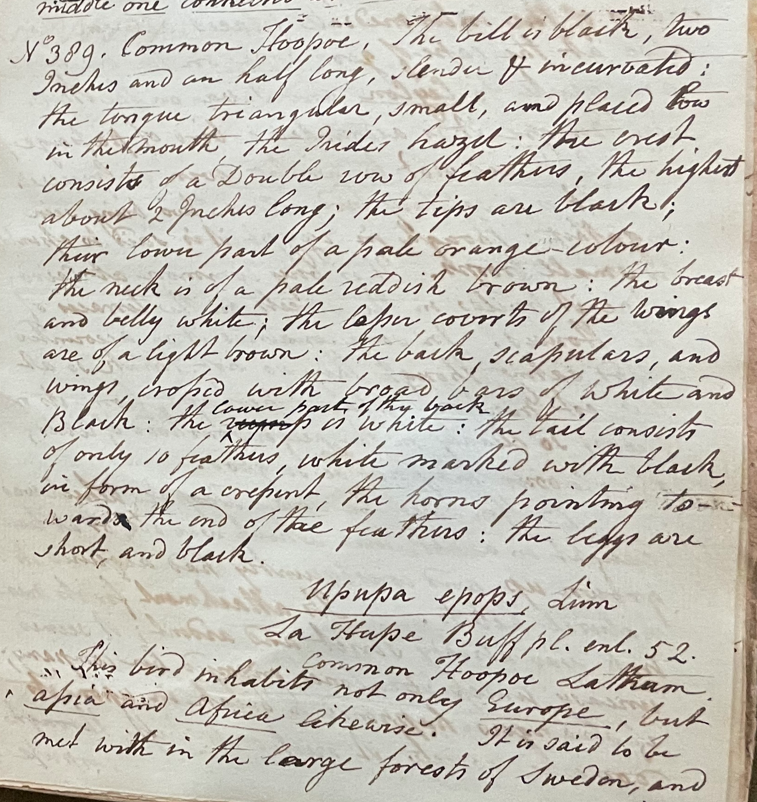 middle one connects
No 389. Common Hoopoe. The bill is black, two
Inches and an half long, slender & incurvated:
the tongue triangular, small, and placed low
in the mouth, the Irides hazel: the crest
consists of a Double row of feathers, the highest
about 2 Inches long; the tips are black;
their lower part of a pale orange colour:
the neck is of a pale reddish brown: the breast
and belly white; the leſser coverts of the wings
are of a light brown: the back, scapulars, and
wings, croſsed with broad bars of white and
Black: the lower part of the back rump is white: the tail consists
of only 10 feathers, white marked with black,
in form of a creſsent, the horns pointing to-
wards the end of the feathers: the legs are
short, and black.
Upupa epops, Linn
La Hupe Buff pl. enl. 52.
Common Hoopoe Latham.
This bird inhabits not only Europe, but
aſsia and Africa likewise. It is said to be
met with in the large forests of Sweden, and